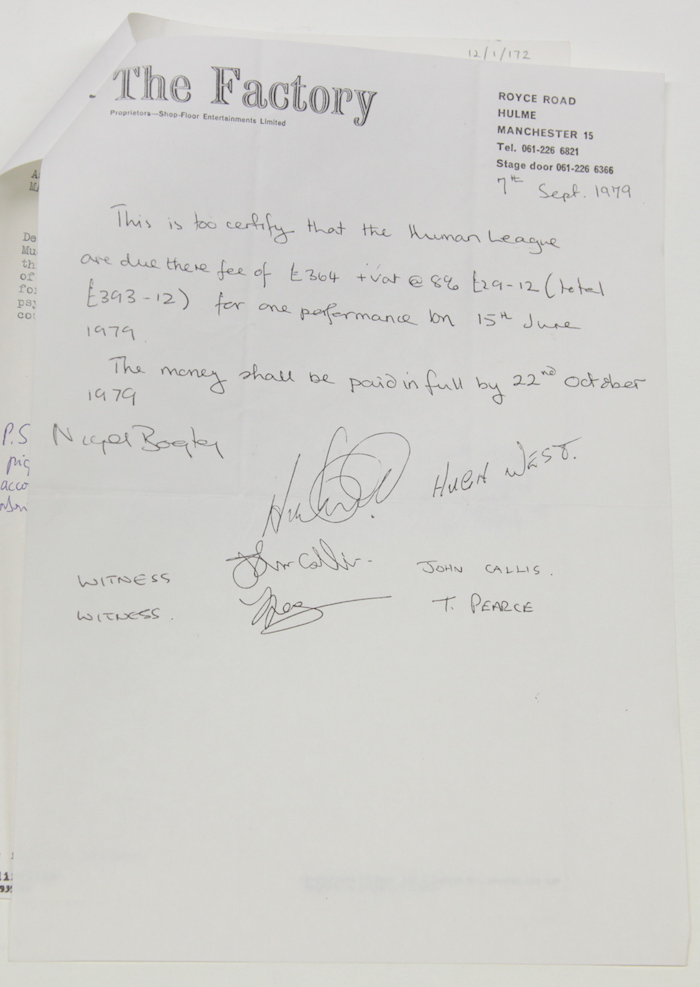 12/1/172
The Factory
Proprietors—Shop-Floor Entertainments Limited
ROYCE ROAD
HULME
MANCHESTER 15
Tel. 061-226 6821
Stage door 061-226 6366
7th Sept. 1979
This is too certify that the Human League
are due there fee of £364 + vat @ 8% £29-12 (total
£393-12) for one performance on 15th June
1979.
The money shall be paid in full by 22nd October
1979
P.S
Nigel Bagley
HUGH WEST.
WITNESS John Callis. JOHN CALLIS.
WITNESS. T. PEARCE
De
Mu
th
of
fo
pay
co
pig
acco